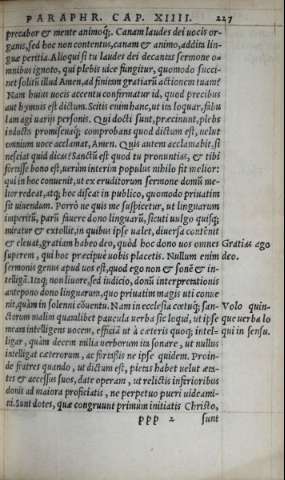 PARAPHR. CAP. XIIII. 227
precabor & mente animoq́;. Canam laudes dei uocis or-
ganis, sed hoc non contentus, canam & animo, addita lin-
guæ peritia. Alioqui si tu laudes dei decantes sermone o-
mnibus ignoto, qui plebis uice fungitur, quomodo succi-
net solitũ illud Amen, ad finiem gratiarũ actionem tuam?
Nam huius uocis accentu confirmatur id, quod precibus
aut hymnis est dictum. Scitis enim hanc, ut ita loquar, fabu
lam agi uarijs personis. Qui docti sunt, præcinunt, plebs
indocta prosequitur; comprobans quod dictum est, uelut
omnium uoce acclamat, Amen. Quis autem acclamabit, si
nesciat quid dicas? Sanctũ est quod tu pronuntias, & tibi
forsisse bono est, uerùm interim populus nihilo fit melior:
qui in hoc conuenit, ut ex eruditorum sermone domũ me-
lior redeat, atq; hoc discat in publico, quomodo priuatim
sit uiuendum. Porrò ne quis me suspicetur, ut linguarum
imperitũ, parũ fauere dono linguarũ, sicuti uulgo quisq;
miratur & extollit, in quibus ipse ualet, diuersa contenit
& eleuat, gratiam habeo deo, quòd hoc dono uos omnes
superem, qui hoc præcipuè uobis placetis. Nullum enim
sermonis genus apud uos est, quod ego non & sonẽ & in-
telligã. Itaq; non liuore, sed iudicio, donũ interpretationis
antepono dono linguarum, quo priuatim magis uti conue
nit, quàm in solenni cõuentu. Nam in ecclesia cœtuq; san-
ctorum malim quamlibet paucula uerba sic loqui, ut ipse
meam intelligens uocem, efficiã ut à cæteris quoq; intel-
ligar, quàm decem milia uerborum ita sonare, ut nullus
intelligat cæterorum, ac fortassis ne ipse quidem. Proin-
de fratres quando, ut dictum est, pietas habet uelut æta-
tes & accessus suos, date operam, ut relictis inferioribus
donis ad maiora proficiatis, ne perpetuo pueri uideami-
ni. Sunt dotes, quæ congruunt primum initiatis Christo,
ppp 2 sunt
Gratias ago
deo.
Volo quin-
que uerba lo
qui in sensu.